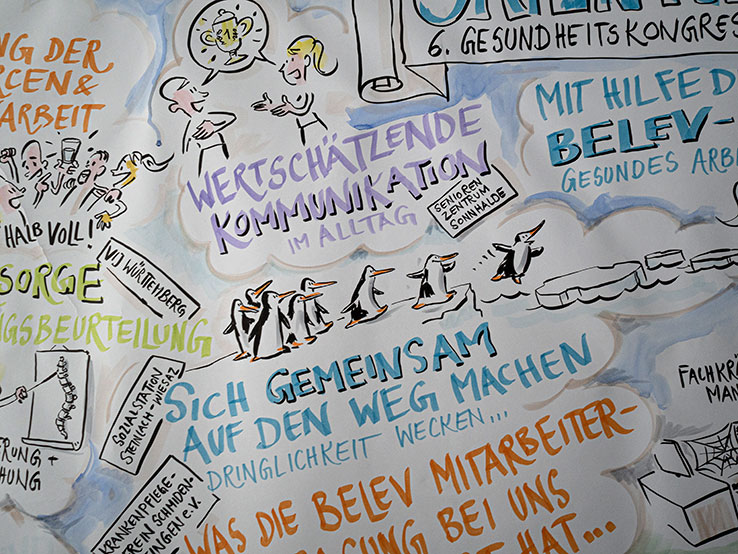 6. GESUNDHEITSKONGRES
NG DER
RCEN &
ARBEIT
HALB VOLL!
VIJ WÜRTTEMBERG
SORGE
NGSBEURTEILUNG
WERTSCHÄTZENDE
KOMMUNIKATION
IM ALLTAG
SENIOREN
ZENTRUM
SONNHALDE
MIT HILFE D
BELEV-
GESUNDES ARB
SICH GEMEINSAM
AUF DEN WEG MACHEN
DRINGLICHKEIT WECKEN...
SOZIALSTATION
ERUNG +
HUNG
KRANKENPFLEGE-
EIN SCHMIDEN-
INGEN e.V.
WAS DIE BELEV MITARBEITER-
GUNG BEI UNS
HAT...
FACHKRÄ
MAN